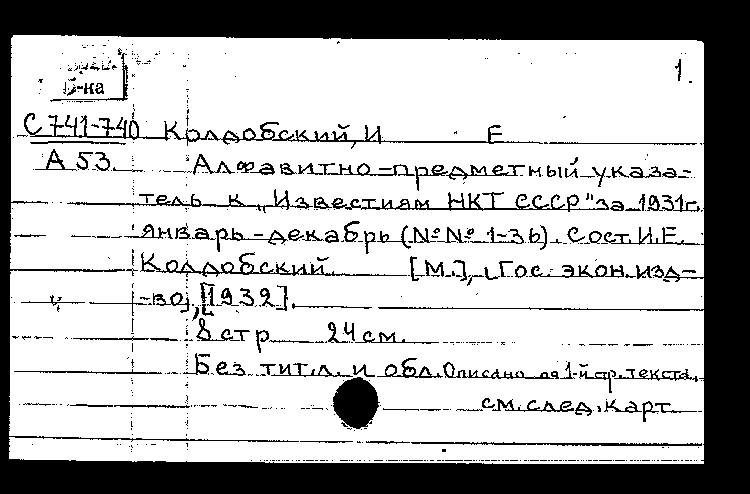 1.
Б-ка
С 741-740 Колдобский, И Е
А 53. Алфавитно-предметный указа-
тель к „Известиям НКТ СССР" за 1931г.
январь-декабрь (№№ 1-36). Сост. И.Е.
Колдобский. [М.], [Гос. экон. изд-
-во], [1932].
8 стр 24 см.
Без тит.л. и обл. Описано по 1-й стр. текста.
см. след. карт.